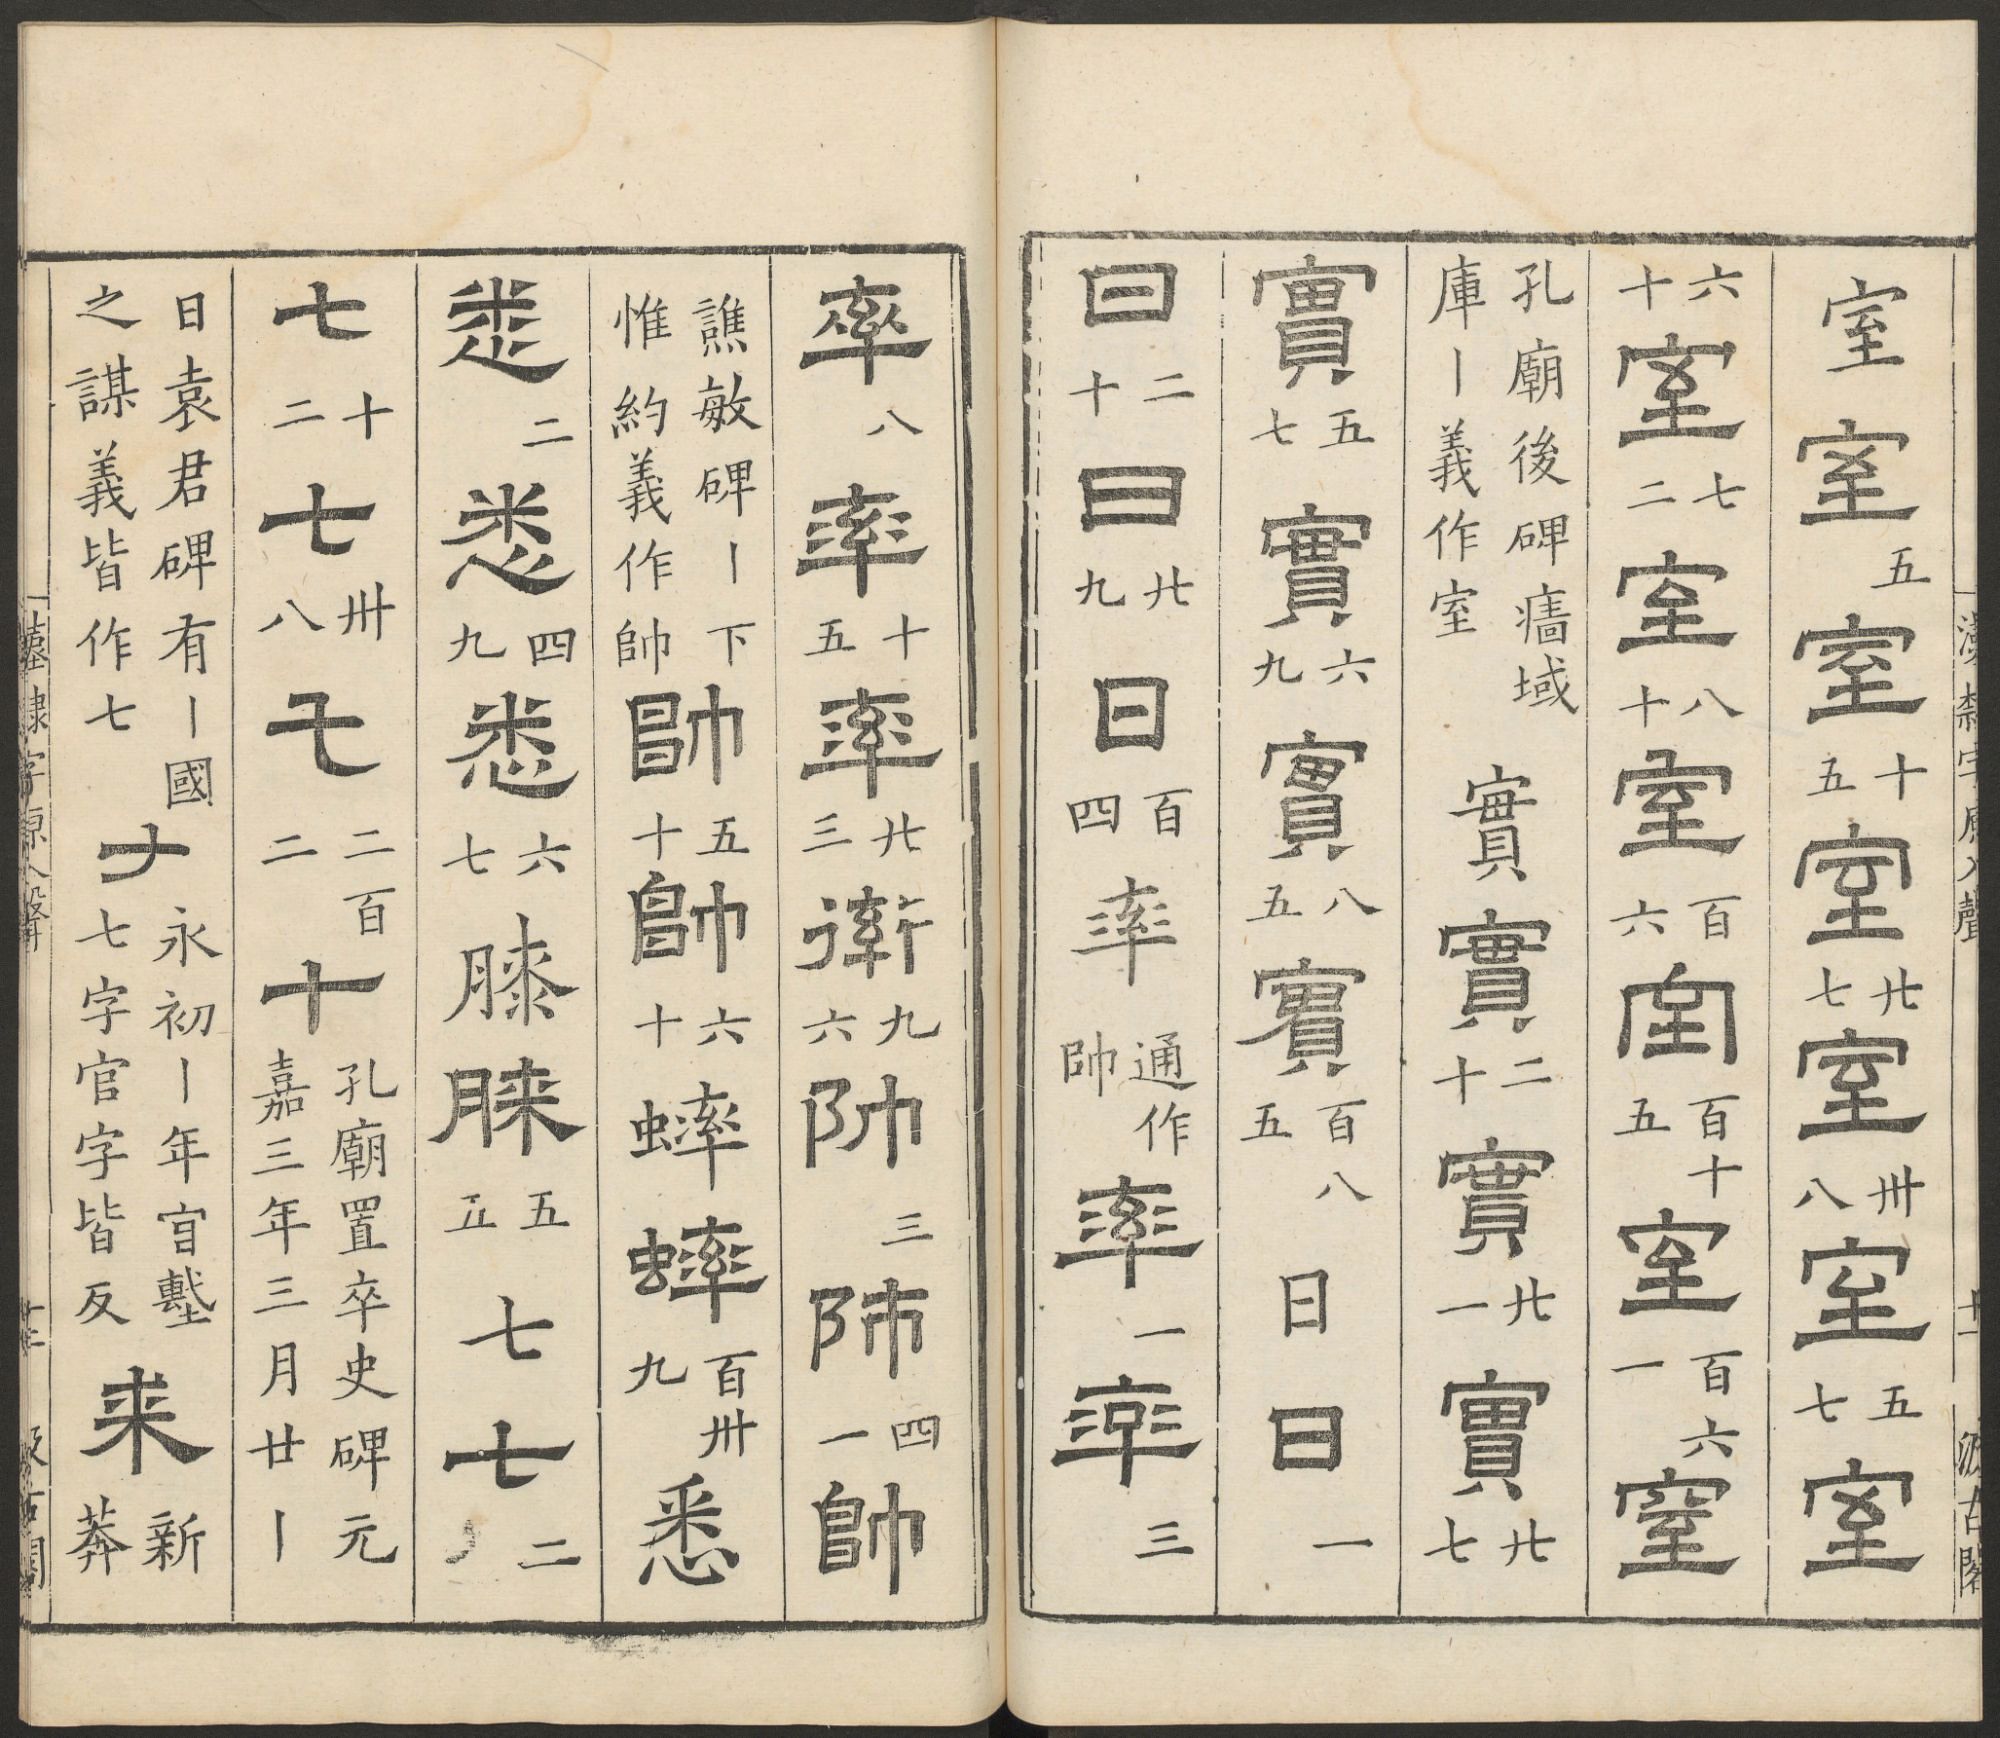 室室五室十五室廿七室卅八室五七室
六十室七二室八十室百六室百十五室百六一室
孔廟後碑牆域庫丨義作室實實二十實廿一實廿七
實五七實六九實八五實百八五日日一
日二十日廿九日百四率通作帥率一率三
率八率十五率廿三衛九六帥三帥四一帥
譙敏碑丨下惟約義作帥帥五十帥六十蟀蟀百卅九悉
悉二悉四九悉六七膝脒五五七七二
七十二七卅八七二百二十孔廟置卒史碑元嘉三年三月廿丨
日袁君碑有丨國之謀義皆作七𠂇永初丨年官墼七字官字皆反来新莽
漢隸字原入聲
十一
汲古閣
汲古閣